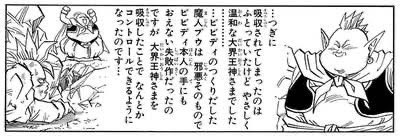 …つぎに
吸収されてしまったのは
ふとっていたけど やさしく
温和な大界王神さまでした
魔人ブウは 邪悪そのもので
…ビビディのつくりだした
ビビディ本人の手にも
おえない失敗作だったの
ですが 大界王神さまを
吸収したことで なんとか
コントロールできるように
なったのです…